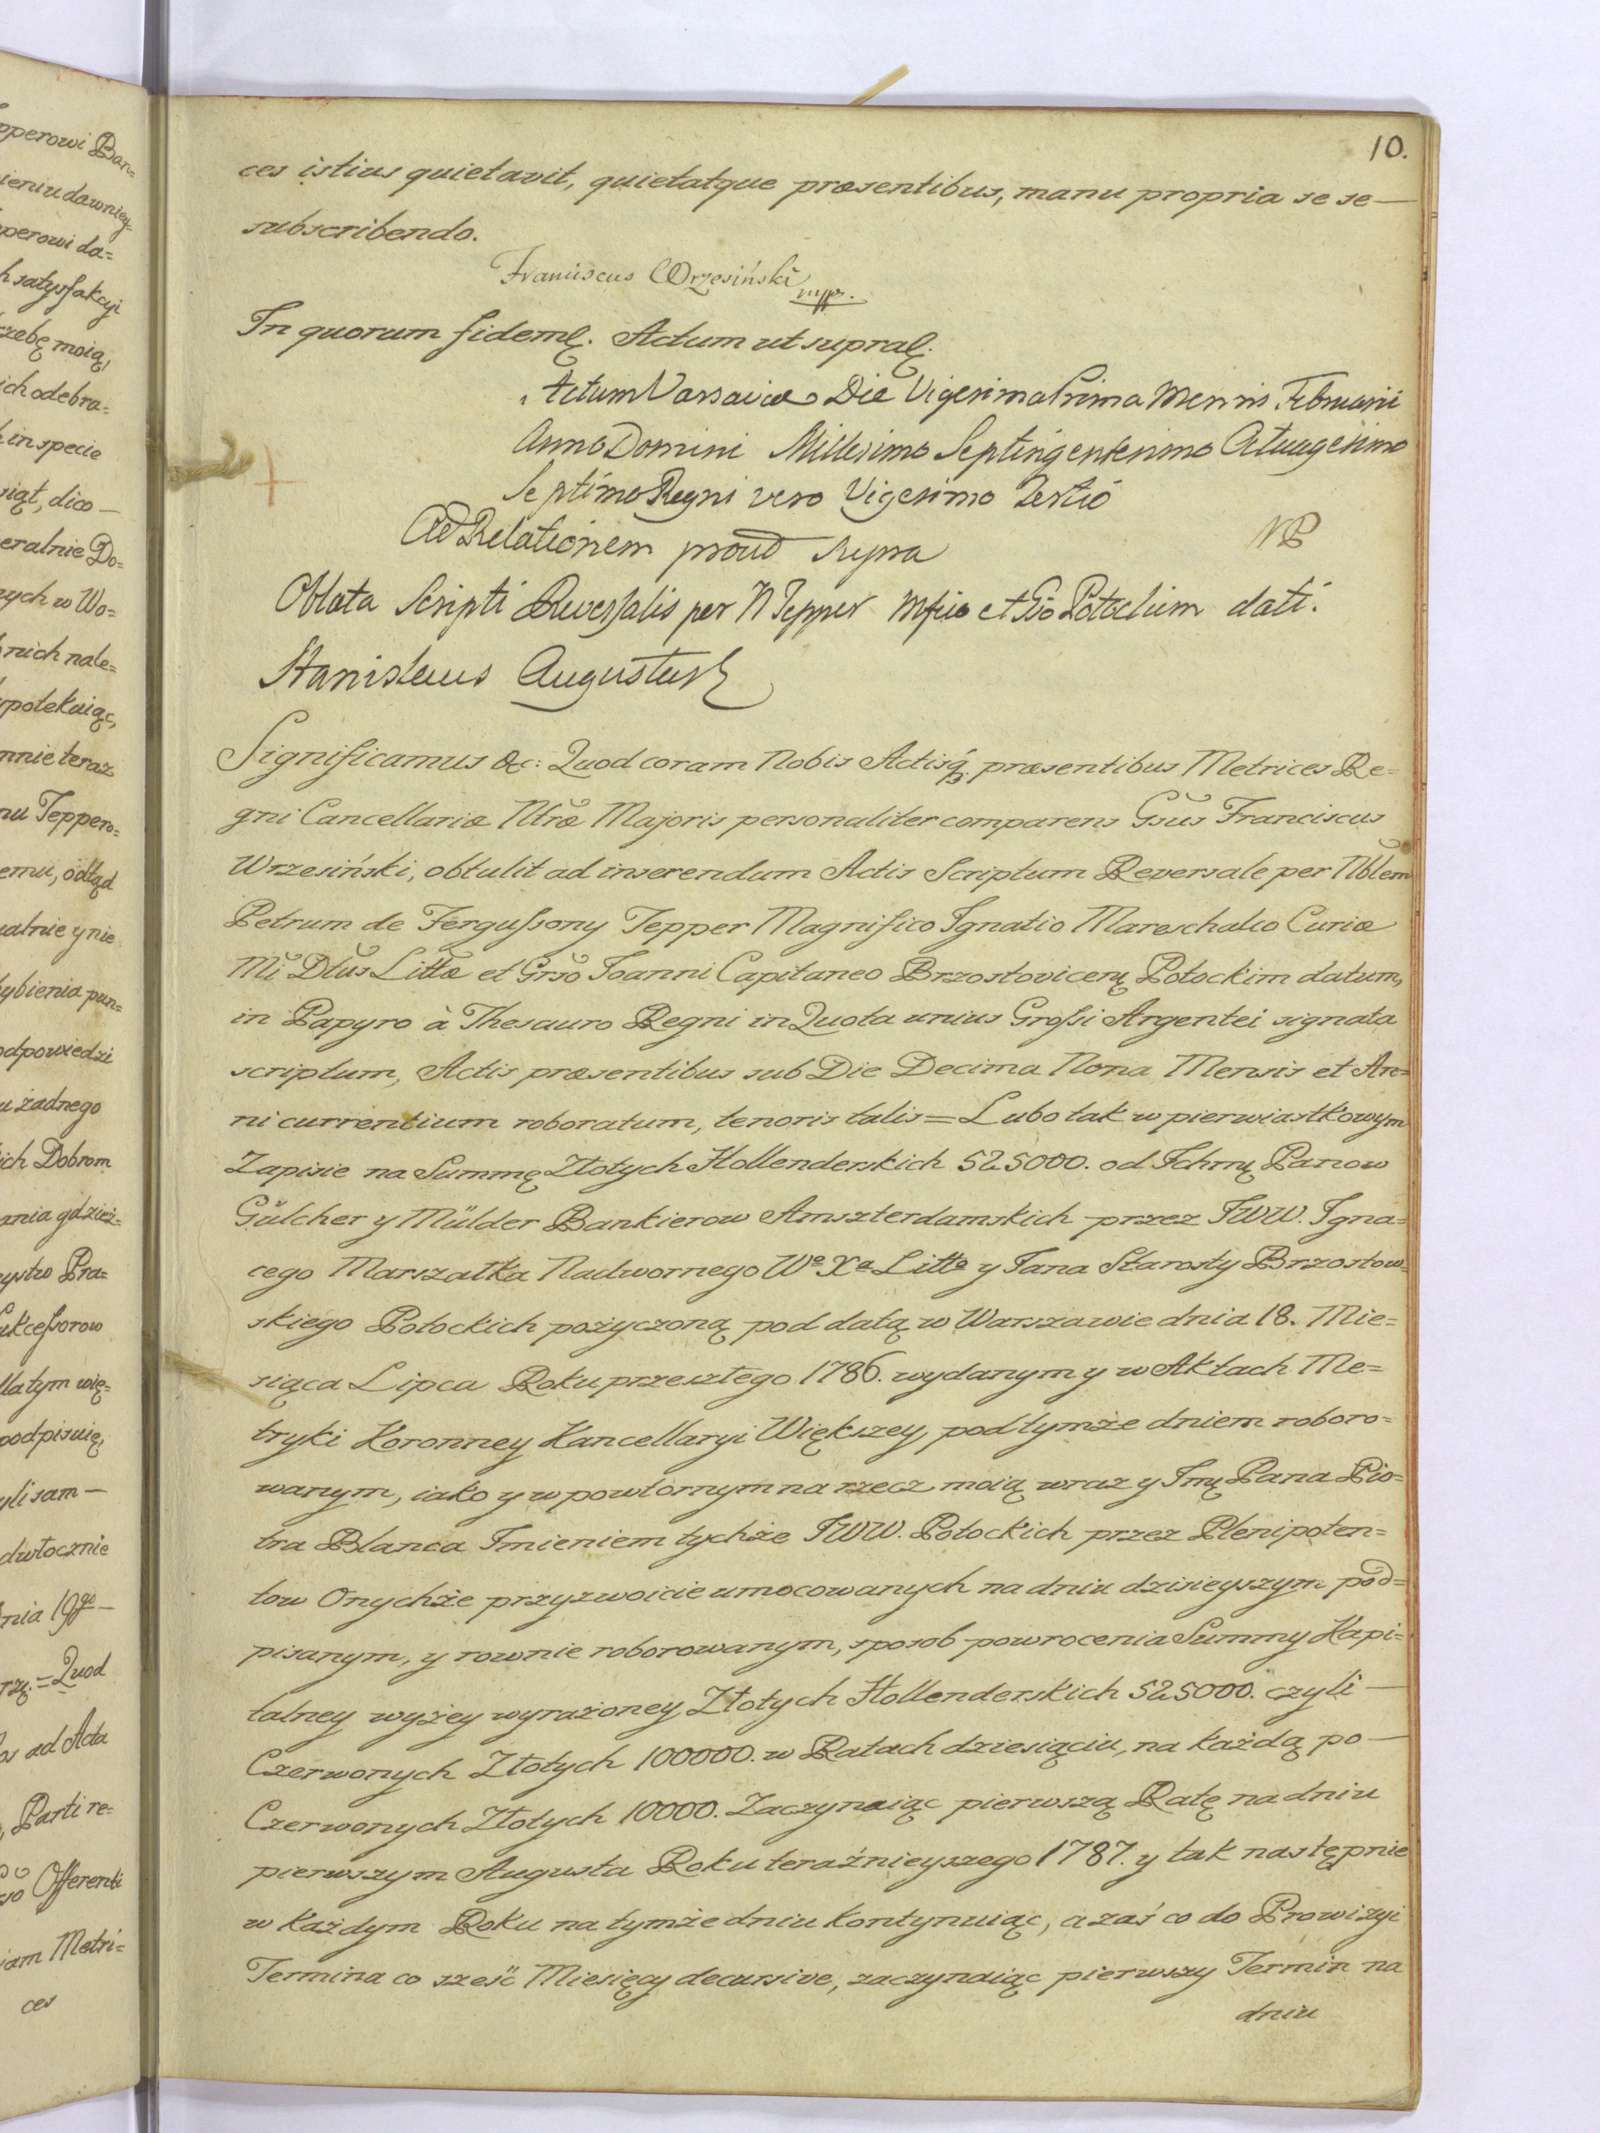 10.
ces istius quietavit, quietatque præsentibus, manu propria se se —
subscribendo.
Franciscus Wrzesiński mpp.
In quorum fidem &. Actum ut supra &.
Actum Varsaviæ Die Vigesima Prima Mensis Februarii
Anno Domini Millesimo Septingentesimo Octuagesimo
Septimo Regni vero Vigesimo Tertio
Ad Relationem prout supra
NB
Oblata Scripti Reversalis per N Tepper Mfico et Gso Potockim dati.
Stanislaus Augustus &
Significamus &c: Quod coram Nobis Actisq; præsentibus Metrices Re=
gni Cancellariæ Ntræ Majoris personaliter comparens Gsus Franciscus
Wrzesiński, obtulit ad inserendum Actis Scriptum Reversale per Nblem
Petrum de Fergussony Tepper Magnifico Ignatio Mareschalco Curiæ
Mi Dtus Littæ et Grso Joanni Capitaneo Brzostovicen Potockim datum,
in Papyro à Thesauro Regni in Quota unius Grossi Argentei signata
scriptum, Actis præsentibus sub Die Decima Nona Mensis et An=
ni currentium roboratum, tenoris talis = Lubo tak w pierwiastkowym
Zapisie na Summę Złotych Hollenderskich 525000. od Ichmę Panow
Gülcher y Mülder Bankierow Amszterdamskich przez JWW. Igna=
cego Marszałka Nadwornego Wo Xa Litto y Jana Starosty Brzostow=
skiego Potockich pożyczoną pod datą w Warszawie dnia 18. Mie=
siąca Lipca Roku przeszłego 1786. wydanym y w Aktach Me=
tryki Koronney Kancellaryi Większey, pod tymże dniem roboro=
wanym, iako y w powtornym na rzecz moią wraz y Jmę Pana Pio=
tra Blanca Imieniem tychże JWW. Potockich przez Plenipoten=
tow Onychże przyzwoicie umocowanych na dniu dzisieyszym pod=
pisanym, y rownie roborowanym, sposob powrocenia Summy Kapi=
talney wyżey wyrażoney Złotych Hollenderskich 525000. czyli —
Czerwonych Złotych 100000. w Ratach dziesiąciu, na każdą po —
Czerwonych Złotych 10000. Zaczynaiąc pierwszą Ratę na dniu
pierwszym Augusta Roku teraźnieyszego 1787. y tak następnie
w każdym Roku na tymże dniu kontynuiąc, a zaś co do Prowizyi
Termina co sześć Miesięcy decursive, zaczynaiąc pierwszy Termin na
dniu